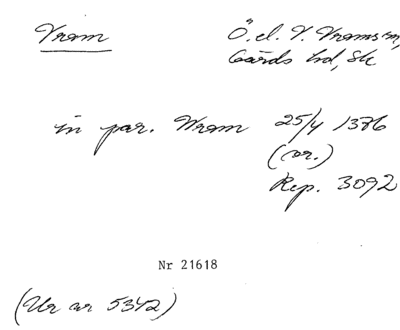 Vram
Ö. el. V. Vrams sn,
Gärds hd, Sk
in par. Wram 25/4 1386
(or.)
Rep. 3092
Nr 21618
(Ur nr 5342)